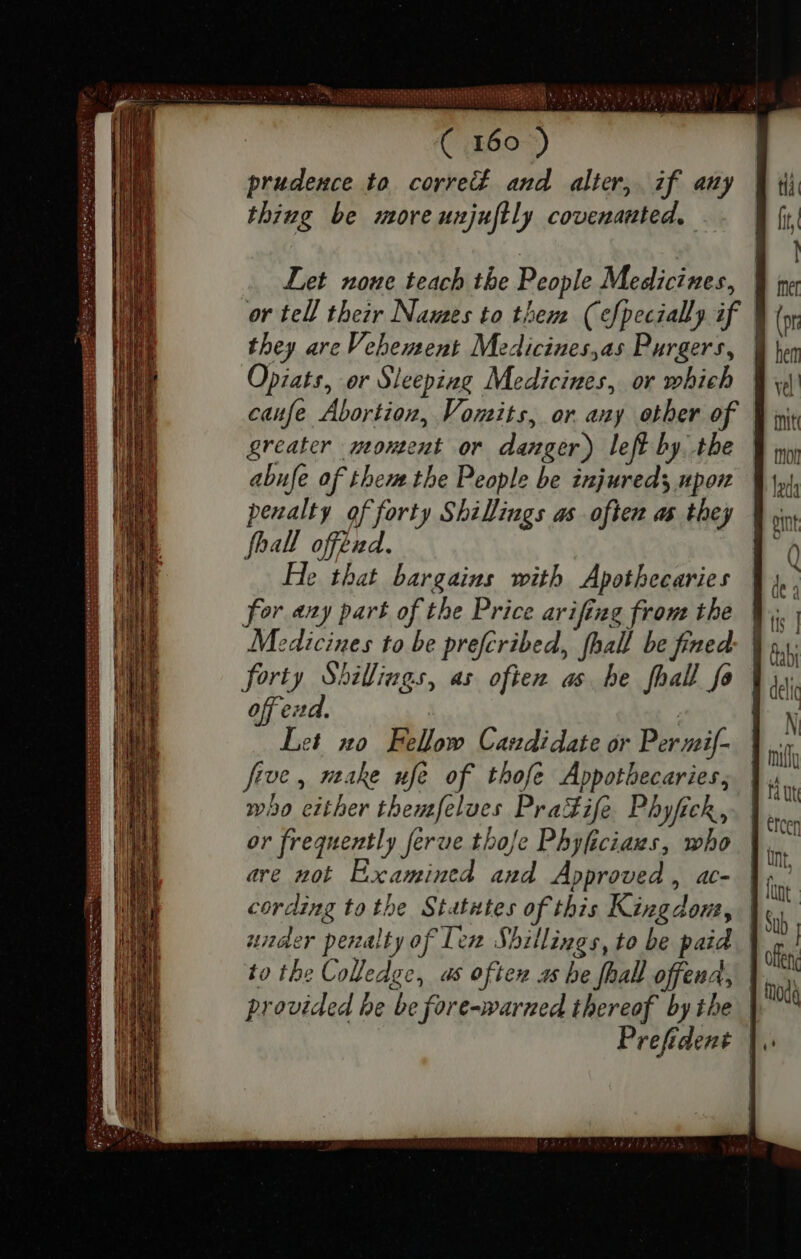 ( 160 )
prudence to correct and alter, if any
thing be more unjuſtly covenanted.
Let none teach the People Medicines,
or tell their Names to them (eſpecially if
they are Vehement Medicines,as Purgers,
Opiats, or Sleeping Medicines, or which
cauſe Abortion, Vomits, or any other of
greater moment or danger) left by the
abuſe of them the People be injured; upon
penalty of forty Shillings as often as they
ſhall offend.
He that bargains with Apothecaries
for any part of the Price ariſing from the
Medicines to be preſcribed, ſhall be fined
forty Shillings, as often as he ſhall ſo
offend.
Let no Fellow Candidate or Permiſ-
ſive, make uſe of thoſe Appothecaries,
who either themſelves Practiſe Phyſick,
or frequently ſerve thoſe Phyſicians, who
are not Examined and Approved, ac-
cording to the Statutes of this Kingdom,
under penalty of Ten Shillings, to be paid
to the Colledge, as often as he ſhall offend,
provided he be fore-warned thereof by the
Preſident